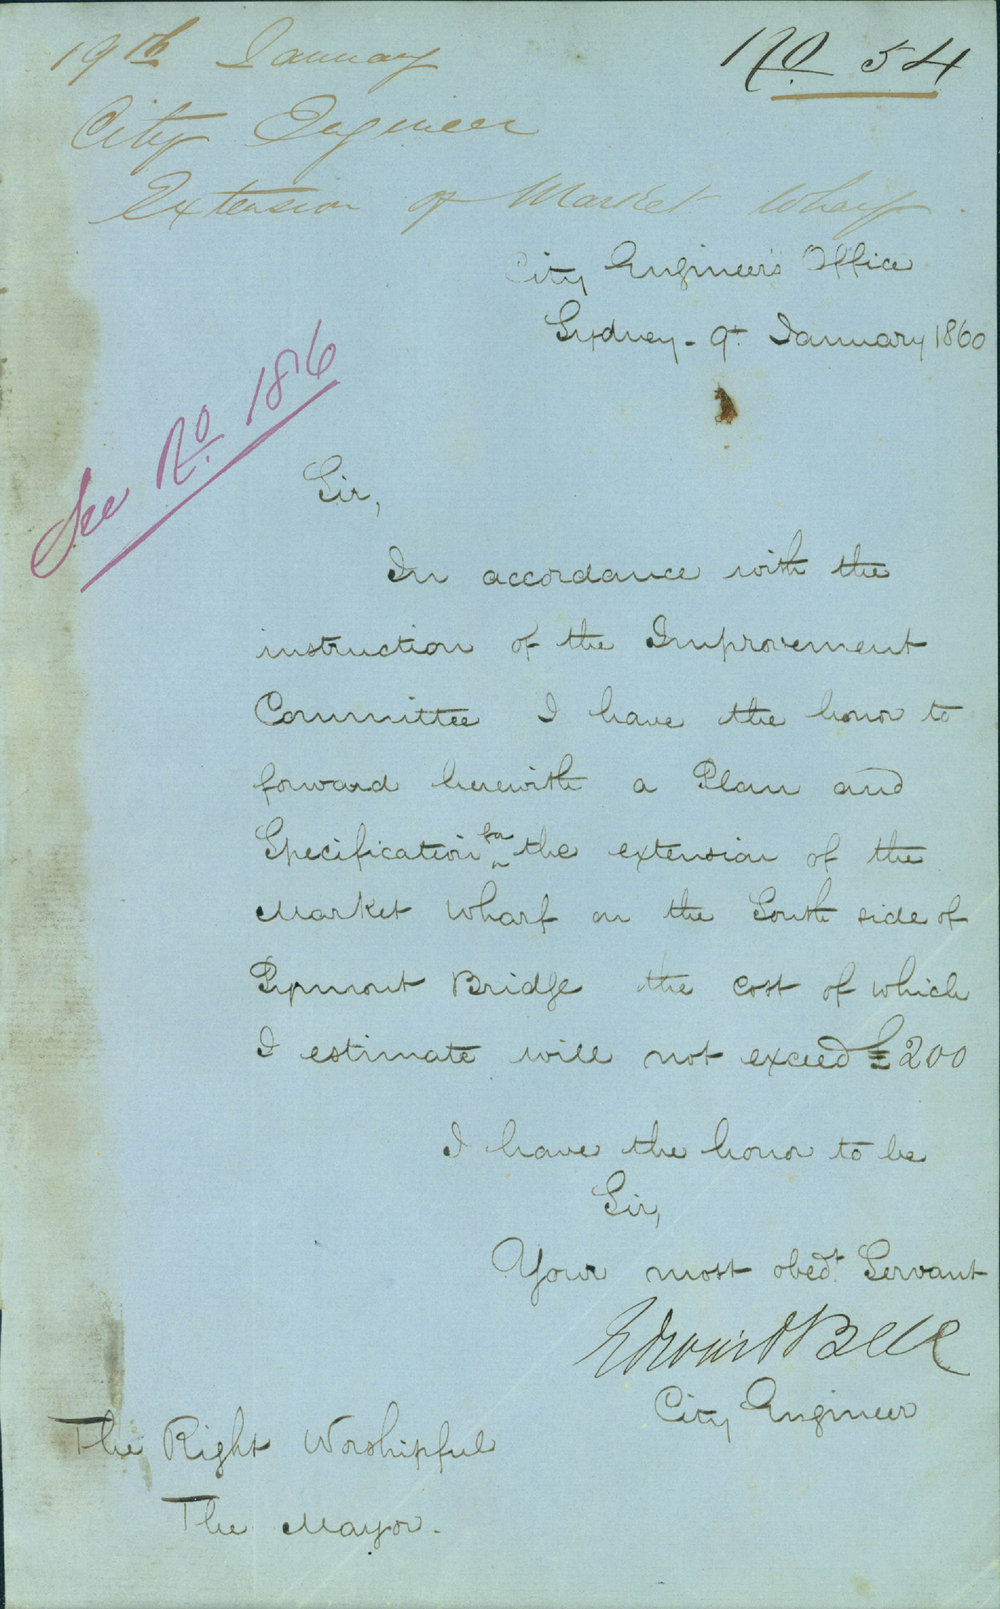 19th January
No 54
City Engineer
Extension of Market Wharf
City Engineer's Office
Sydney - 9th January 1860
See No 186
Sir,
In accordance with the
instruction of the Improvement
Committee I have the honor to
forward herewith a Plan and
Specification for the extension of the
Market Wharf on the South side of
Pyrmont Bridge the cost of which
I estimate will not exceed £200
I have the honor to be
Sir,
Your most obedt Servant
Edward Bell
City Engineer
The Right Worshipful
The Mayor.